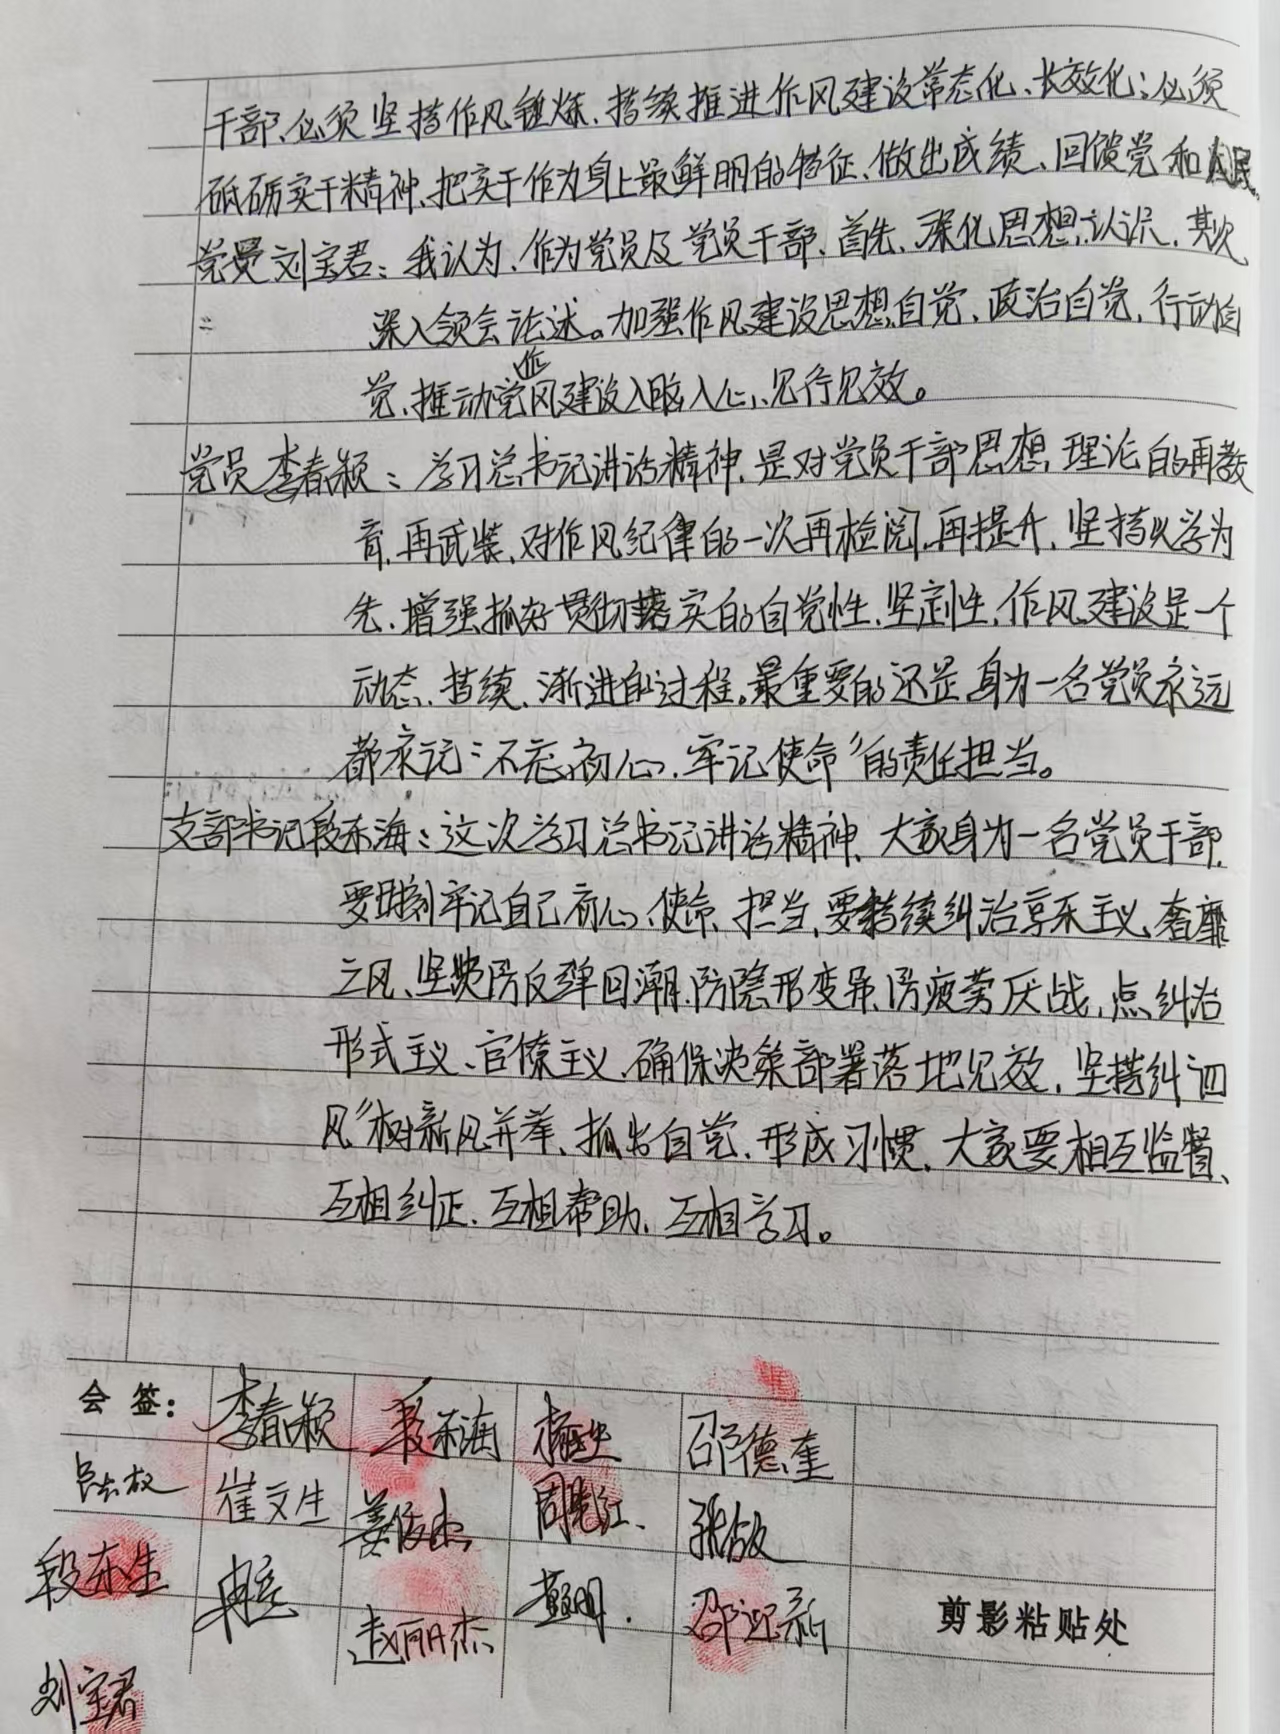 干部、必须坚持作风锤炼、持续推进作风建设常态化、长效化；必须
砥砺实干精神、把实干作为身上最鲜明的特征、做出成绩、回馈党和人民。
党员刘宝君：我认为、作为党员及党员干部、首先、深化思想认识、其次
深入领会论述。加强作风建设思想自觉、政治自觉、行动自
觉、推动党的作风建设入脑入心、见行见效。
党员李春颖：学习总书记讲话精神、是对党员干部思想理论的再教
育、再武装、对作风纪律的一次再检阅、再提升、坚持以学为
先、增强抓好贯彻落实的自觉性、坚定性、作风建设是一个
动态、持续、渐进的过程。最重要的还是身为一名党员永远
都永记“不忘初心、牢记使命”的责任担当。
支部书记段东海：这次学习总书记讲话精神、大家身为一名党员干部、
要时刻牢记自己初心、使命、担当、要持续纠治享乐主义、奢靡
之风、坚决防反弹回潮、防隐形变异、防疲劳厌战、点纠治
形式主义、官僚主义、确保决策部署落地见效、坚持纠四
风”树新风并举、抓出自觉、形成习惯、大家要相互监督、
互相纠正、互相帮助、互相学习。
会签： 李春颖 段东海 邵德奎
崔文生 姜俊杰 周先红
段东生 赵丽杰 邵迎新
剪影粘贴处
刘宝君